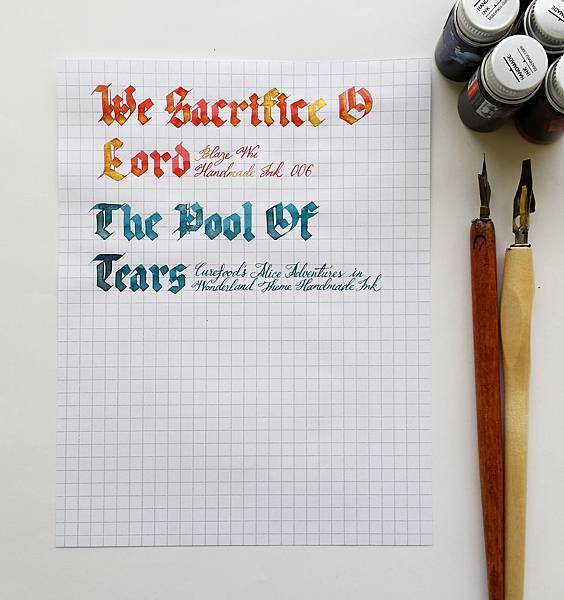 We Sacrifice O
Lord
Blaze Wu
Handmade Ink 006
The Pool Of
Tears
Curefood's Alice Adventures in
Wonderland Theme Handmade Ink
HANDMADE
INK
HANDMADE
INK